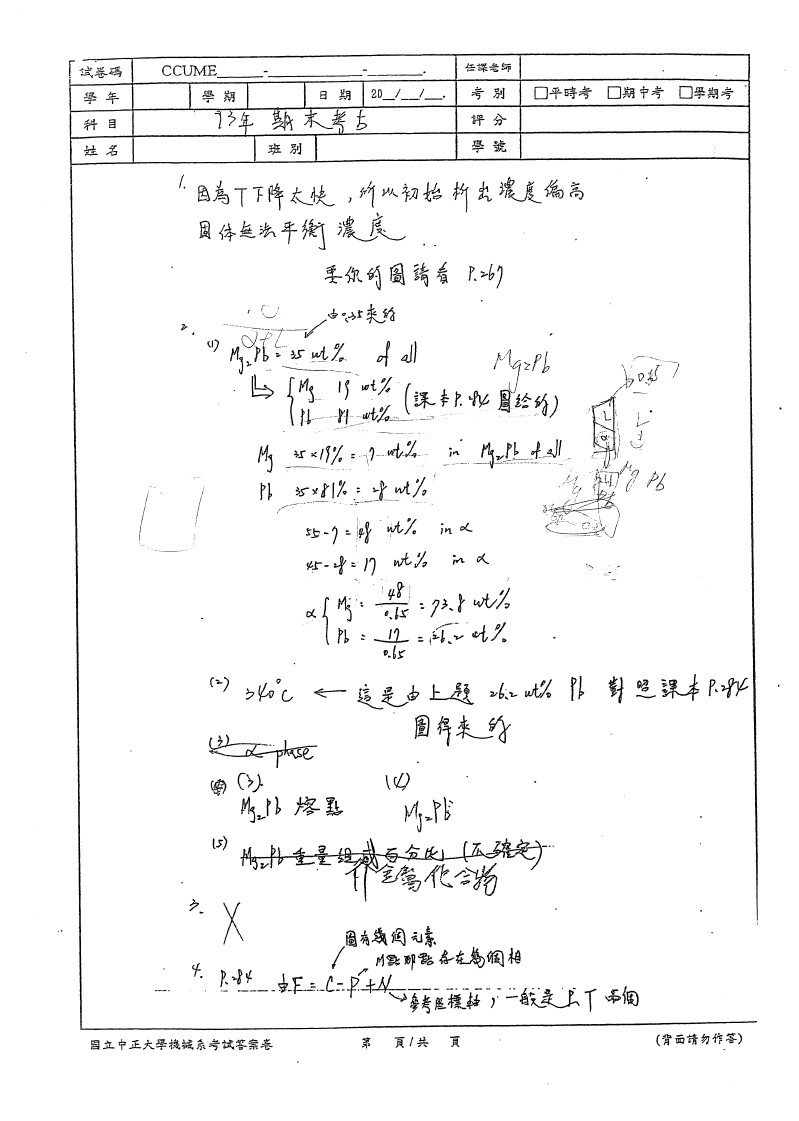 試卷碼 CCUME______-____________-_______. 任課老師
學年 學期 日期 20__/__/__. 考別 □平時考 □期中考 □學期考
科目 93年 期末考古 評分
姓名 班別 學號
1. 因為T下降太快,所以初始析出濃度偏高
固体無法平衡濃度
要你的圖請看 P.267
2. 由0.35來的
α+L
(1) Mg₂Pb = 35 wt% of all Mg₂Pb
Mg 19 wt%
Pb 81 wt% (課本P.284圖給的)
Mg 35×19% = 7 wt% in Mg₂Pb of all
Pb 35×81% = 28 wt%
55-7 = 48 wt% in α
45-28 = 17 wt% in α
α { Mg = 48/0.65 = 73.8 wt%
Pb = 17/0.65 = 26.2 wt%
(2) 340°C ← 這是由上題 26.2 wt% Pb 對照課本P.284
圖得來的
(3) α phase
(3). (4)
Mg₂Pb 熔點 Mg₂Pb
(5) Mg₂Pb重量組成百分比 (不確定)
介金屬化合物
3. X
圖有幾個元素
M點那點存在幾個相
4. P.284 由F = C-P+N
參考座標軸,一般是P、T 兩個
國立中正大學機械系考試答案卷 第 頁/共 頁 (背面請勿作答)